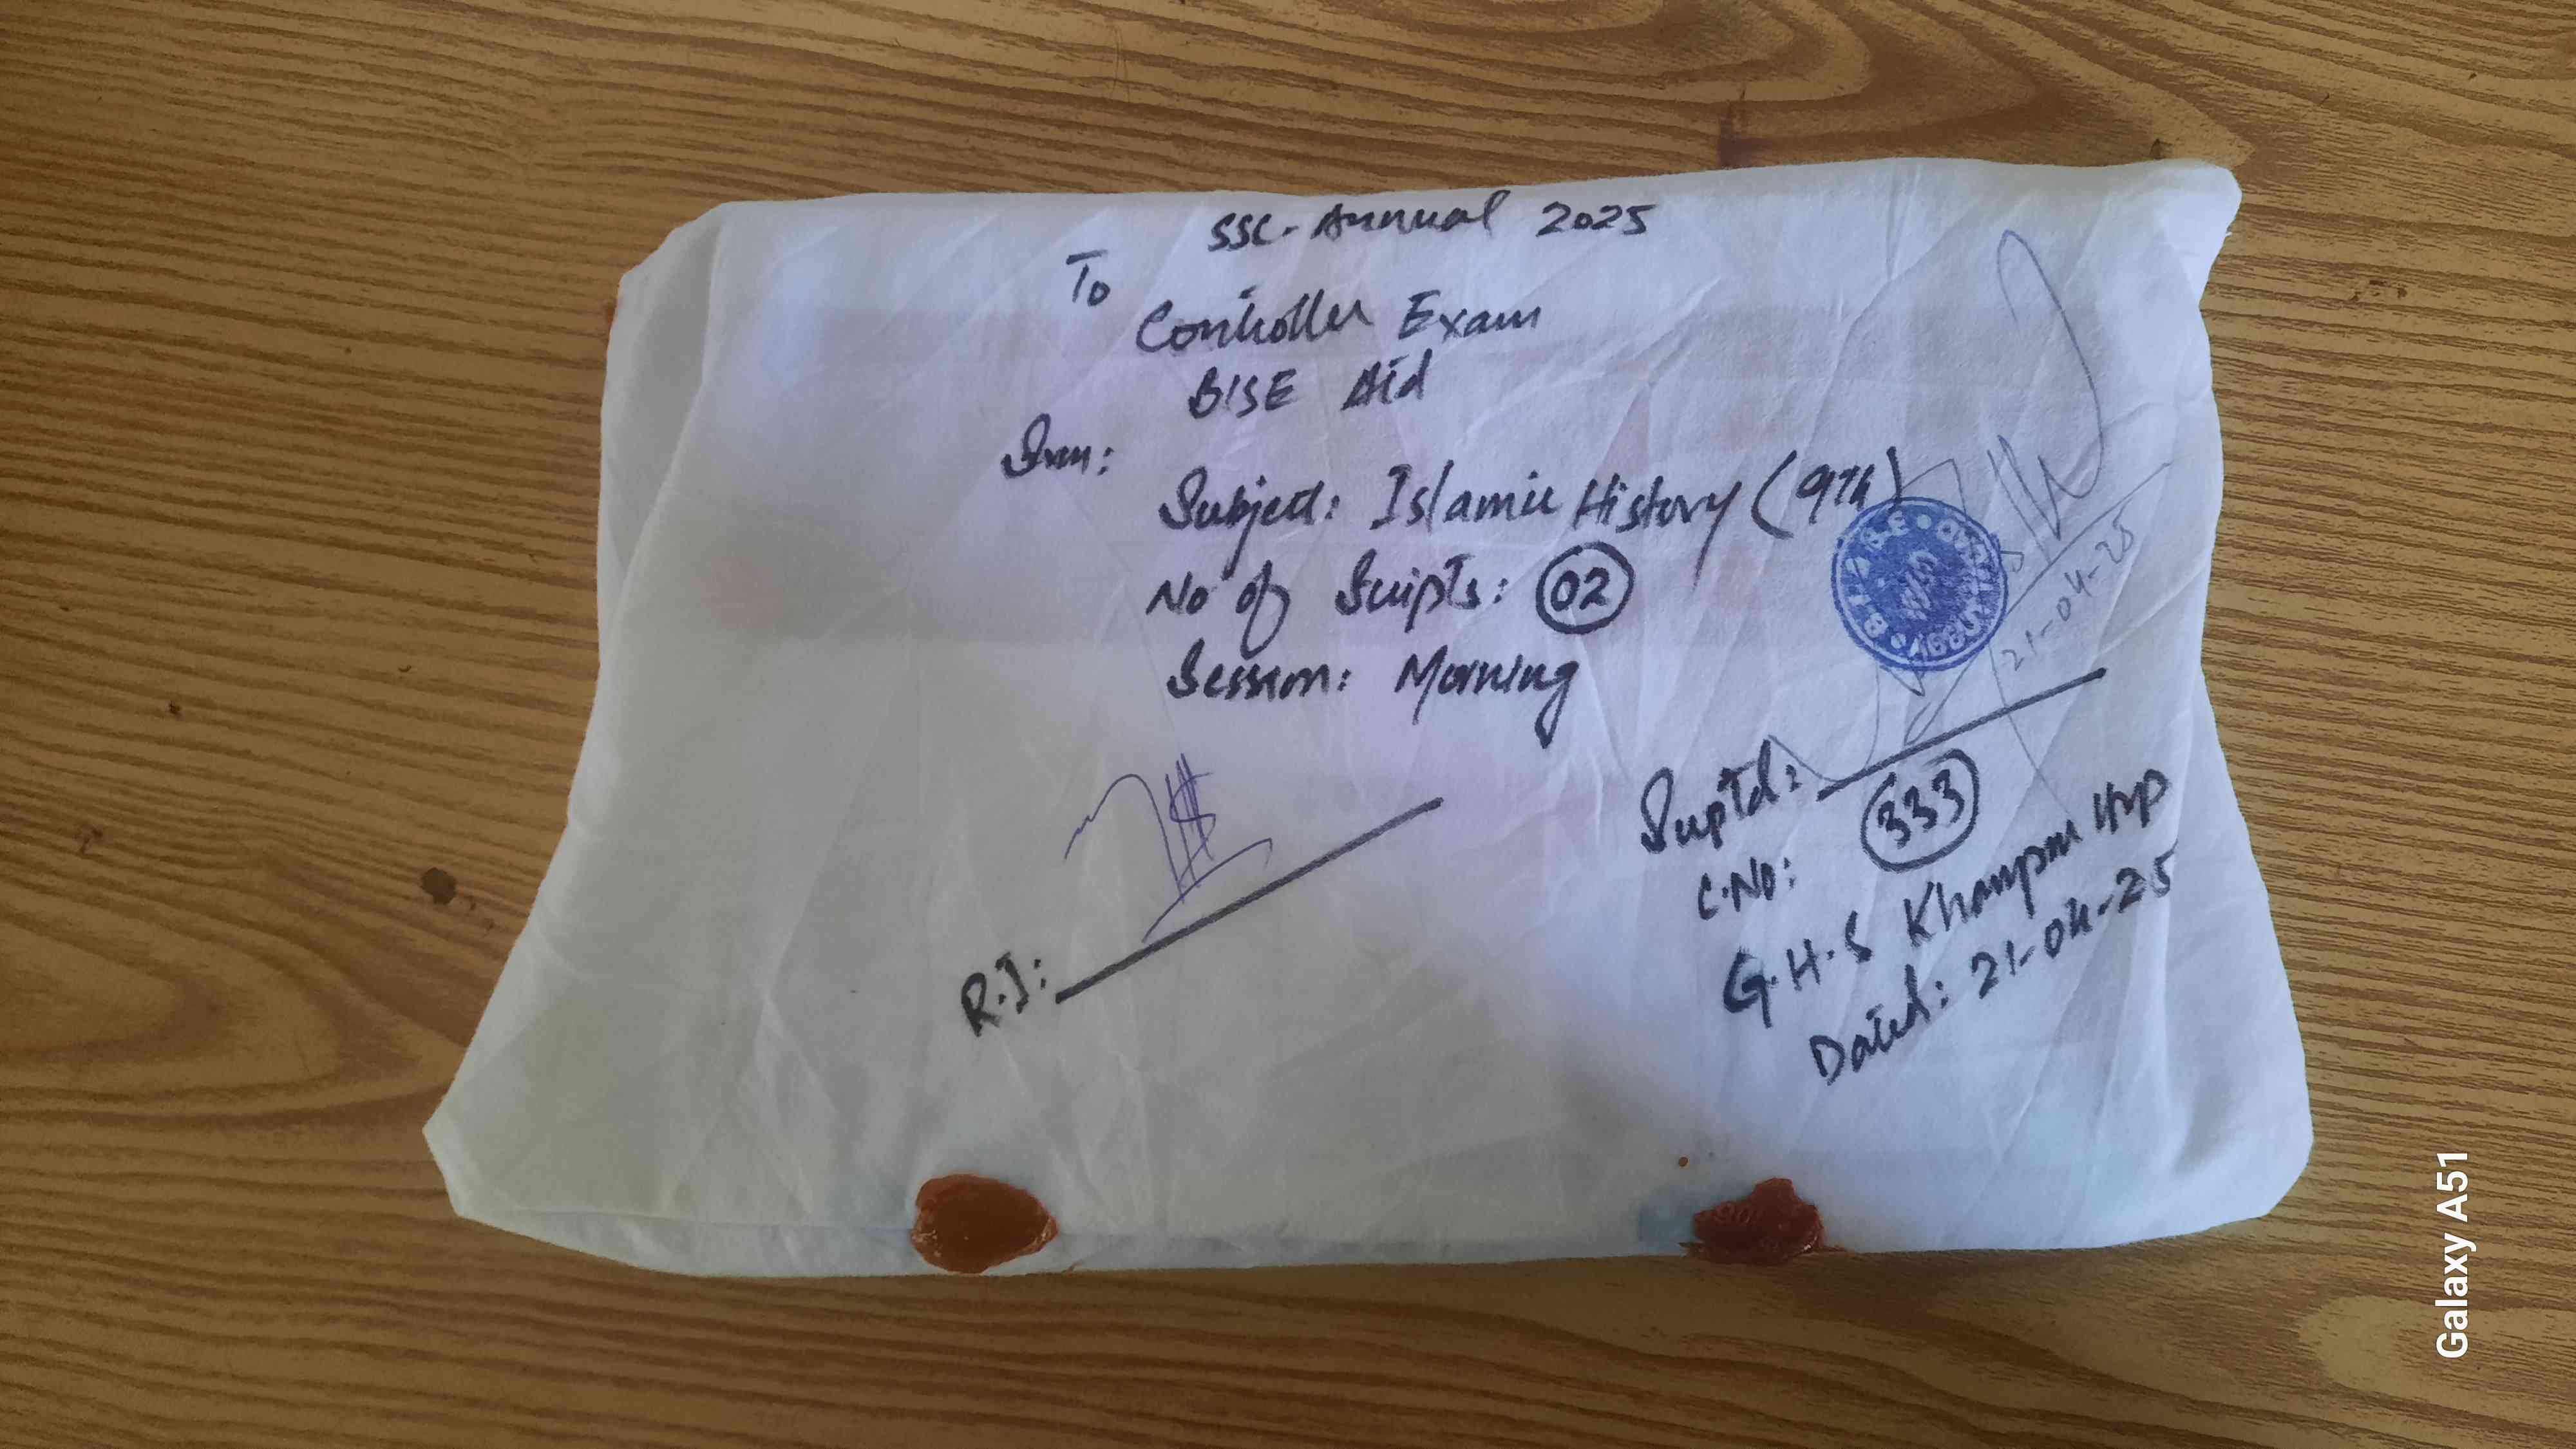 SSC-Annual 2025
To
Controller Exam
BISE Atd
From:
Subject: Islamic History (9th)
No of Scripts: 02
Session: Morning
21-04-25
Suptd:
C.No: 333
G.H.S Khanpur Hrp
Dated: 21-04-25
R.I:
Galaxy A51